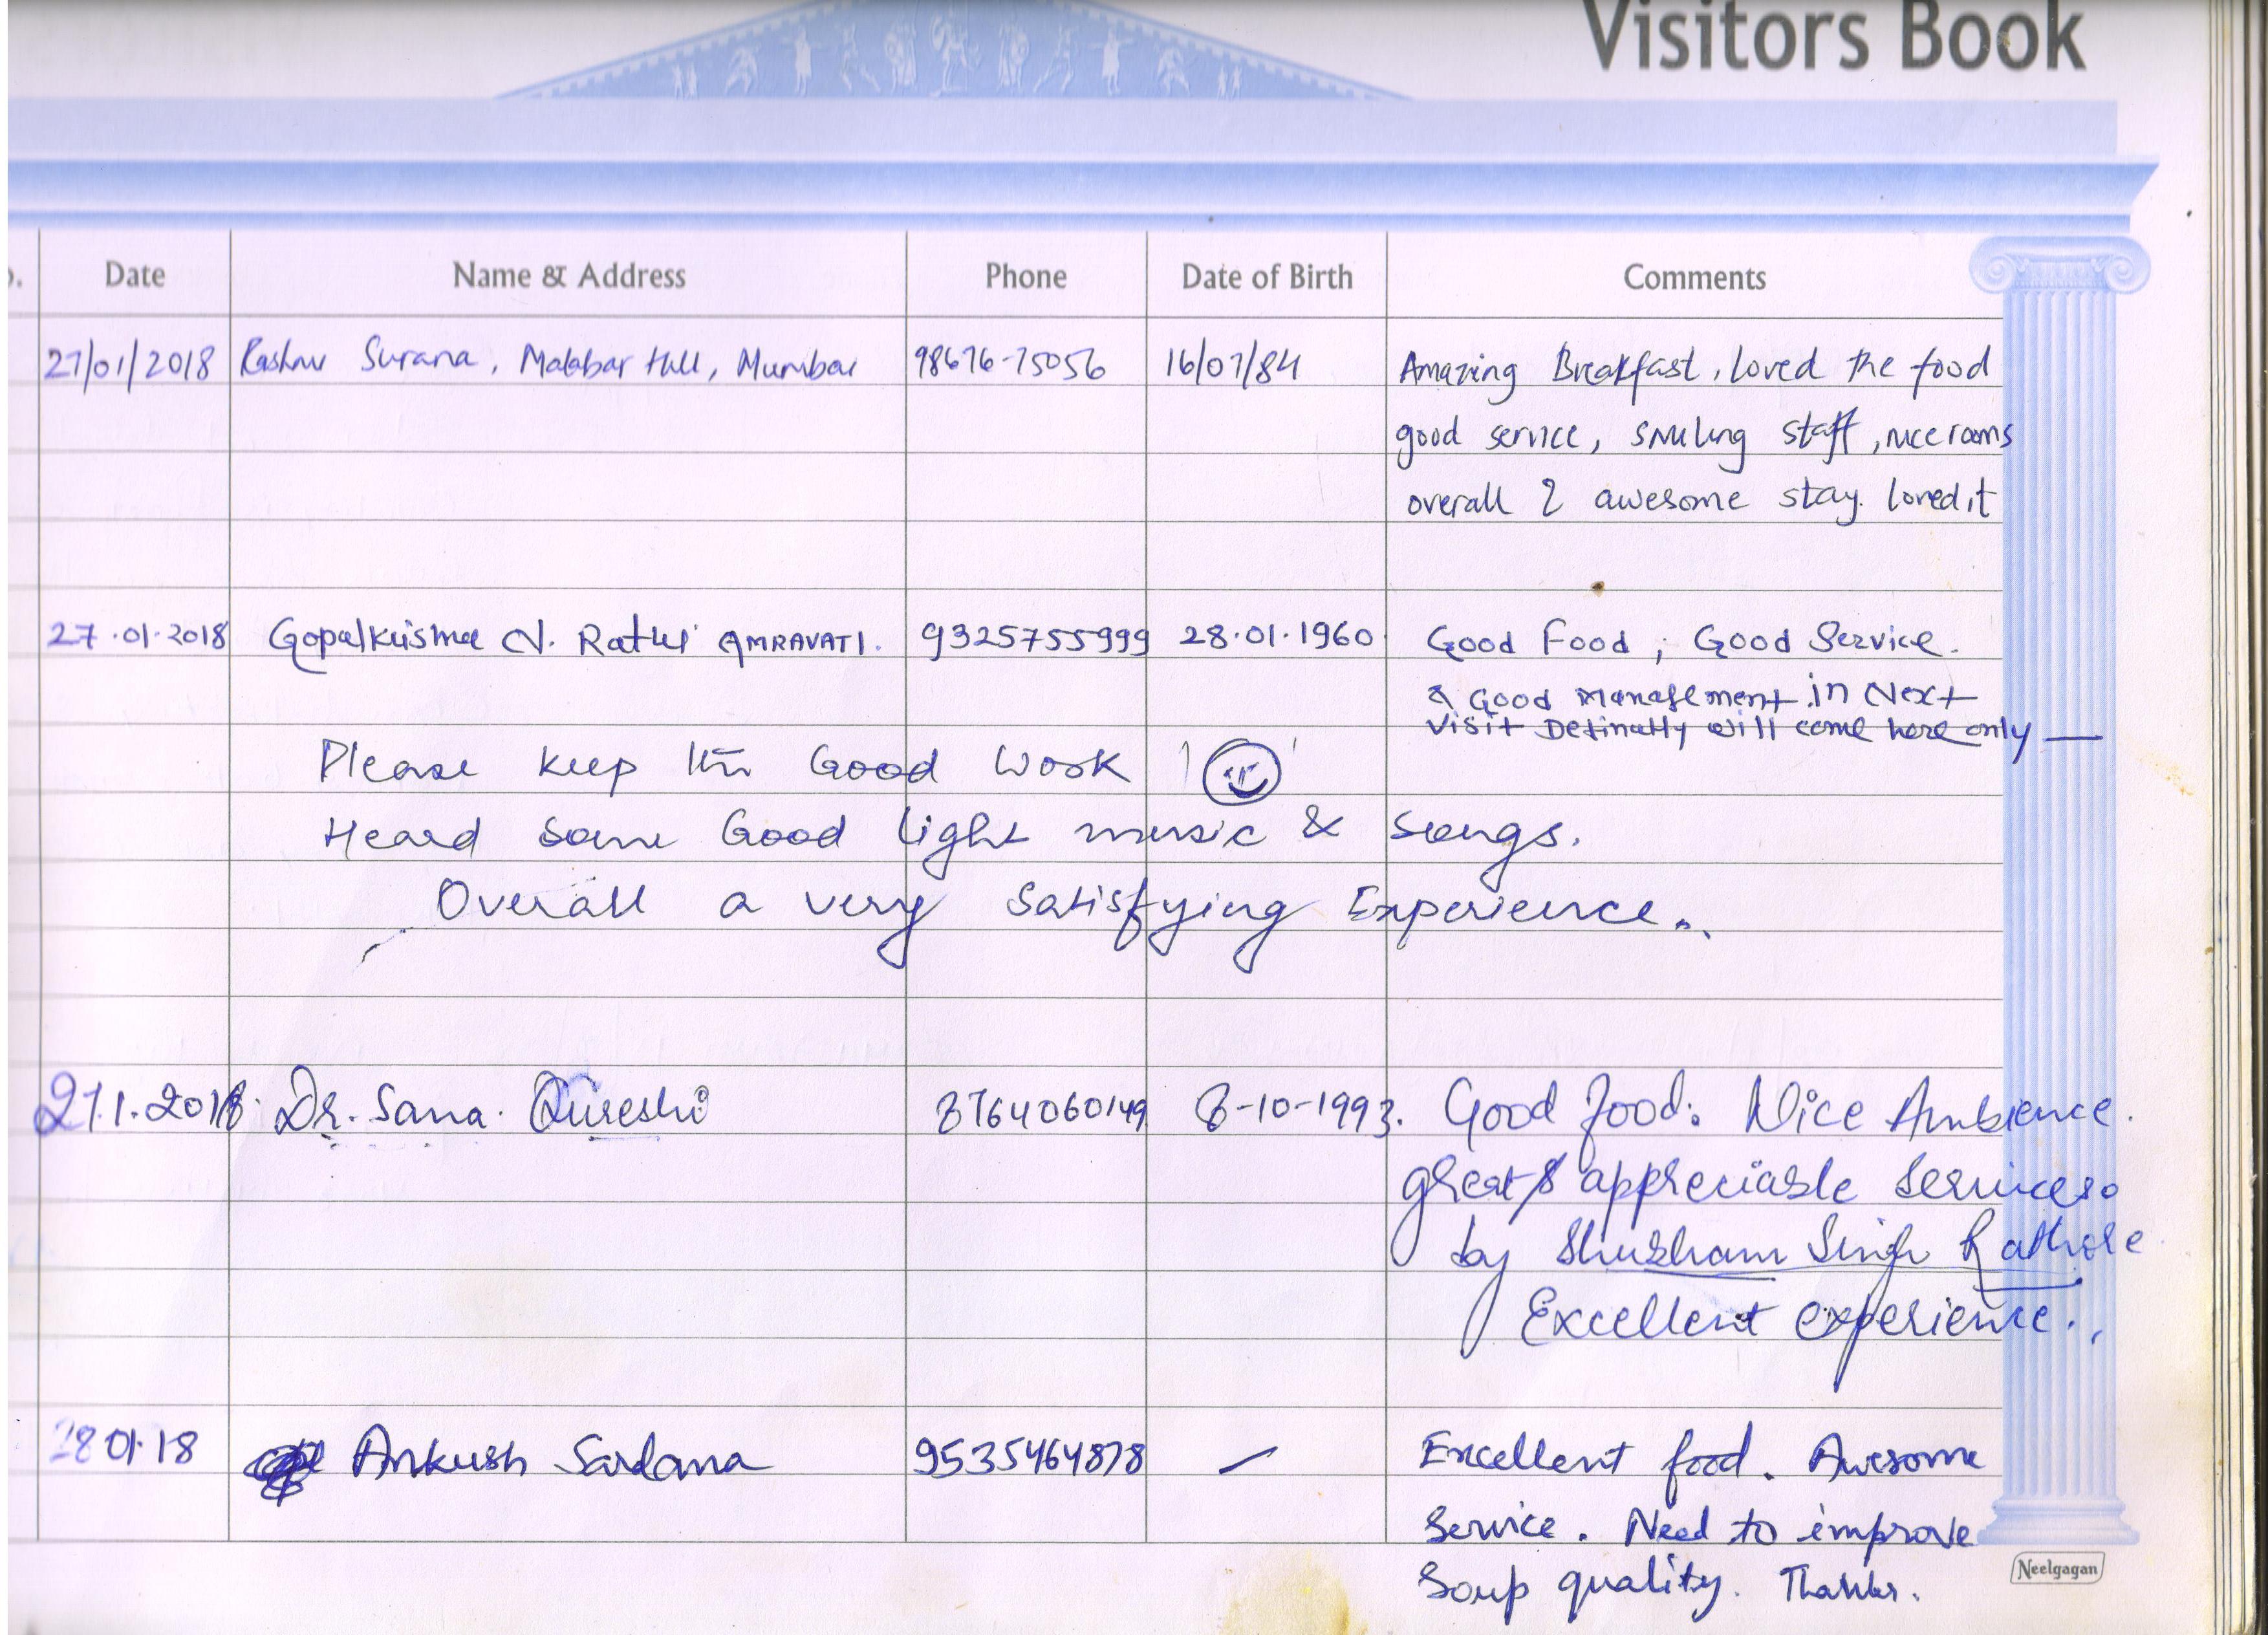 Visitors Book
. Date Name & Address Phone Date of Birth Comments
27/01/2018 Rashmi Surana, Malabar Hill, Mumbai 98676-75056 16/07/84 Amazing Breakfast, loved the food
good service, smiling staff, nice rooms
overall 2 awesome stay. loved it
27.01.2018 Gopalkrishna N. Rathi AMRAVATI. 9325755999 28.01.1960 Good Food, Good Service.
& Good Management in Next
visit Definatly will come here only —
Please keep the Good Work !
Heard some Good light music & songs.
Overall a very Satisfying Experience..
27.1.2018. Dr. Sana. Qureshi 8764060149 8-10-1993. Good food. Nice Ambience.
great & appreciable services.
by Shubham Singh Rathore
Excellent experience..
28 01.18 Ankush Sardana 9535464878 — Excellent food. Awesome
Service. Need to improve
Soup quality. Thanks.
Neelgagan